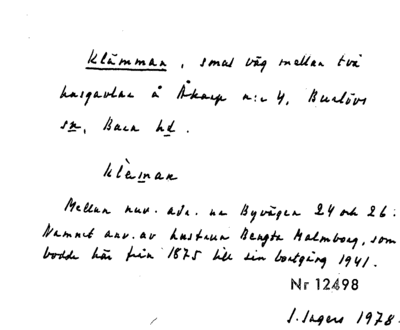 Klämman, smal väg mellan två
husgavlar å Åkarp n:r 4, Burlövs
sn, Bara hd.
klèman
Mellan nuv. adr. na Byvägen 24 och 26.
Namnet anv. av hustrun Bengta Malmborg, som
bodde här från 1875 till sin bortgång 1941.
Nr 12498
S. Ingers 1978.